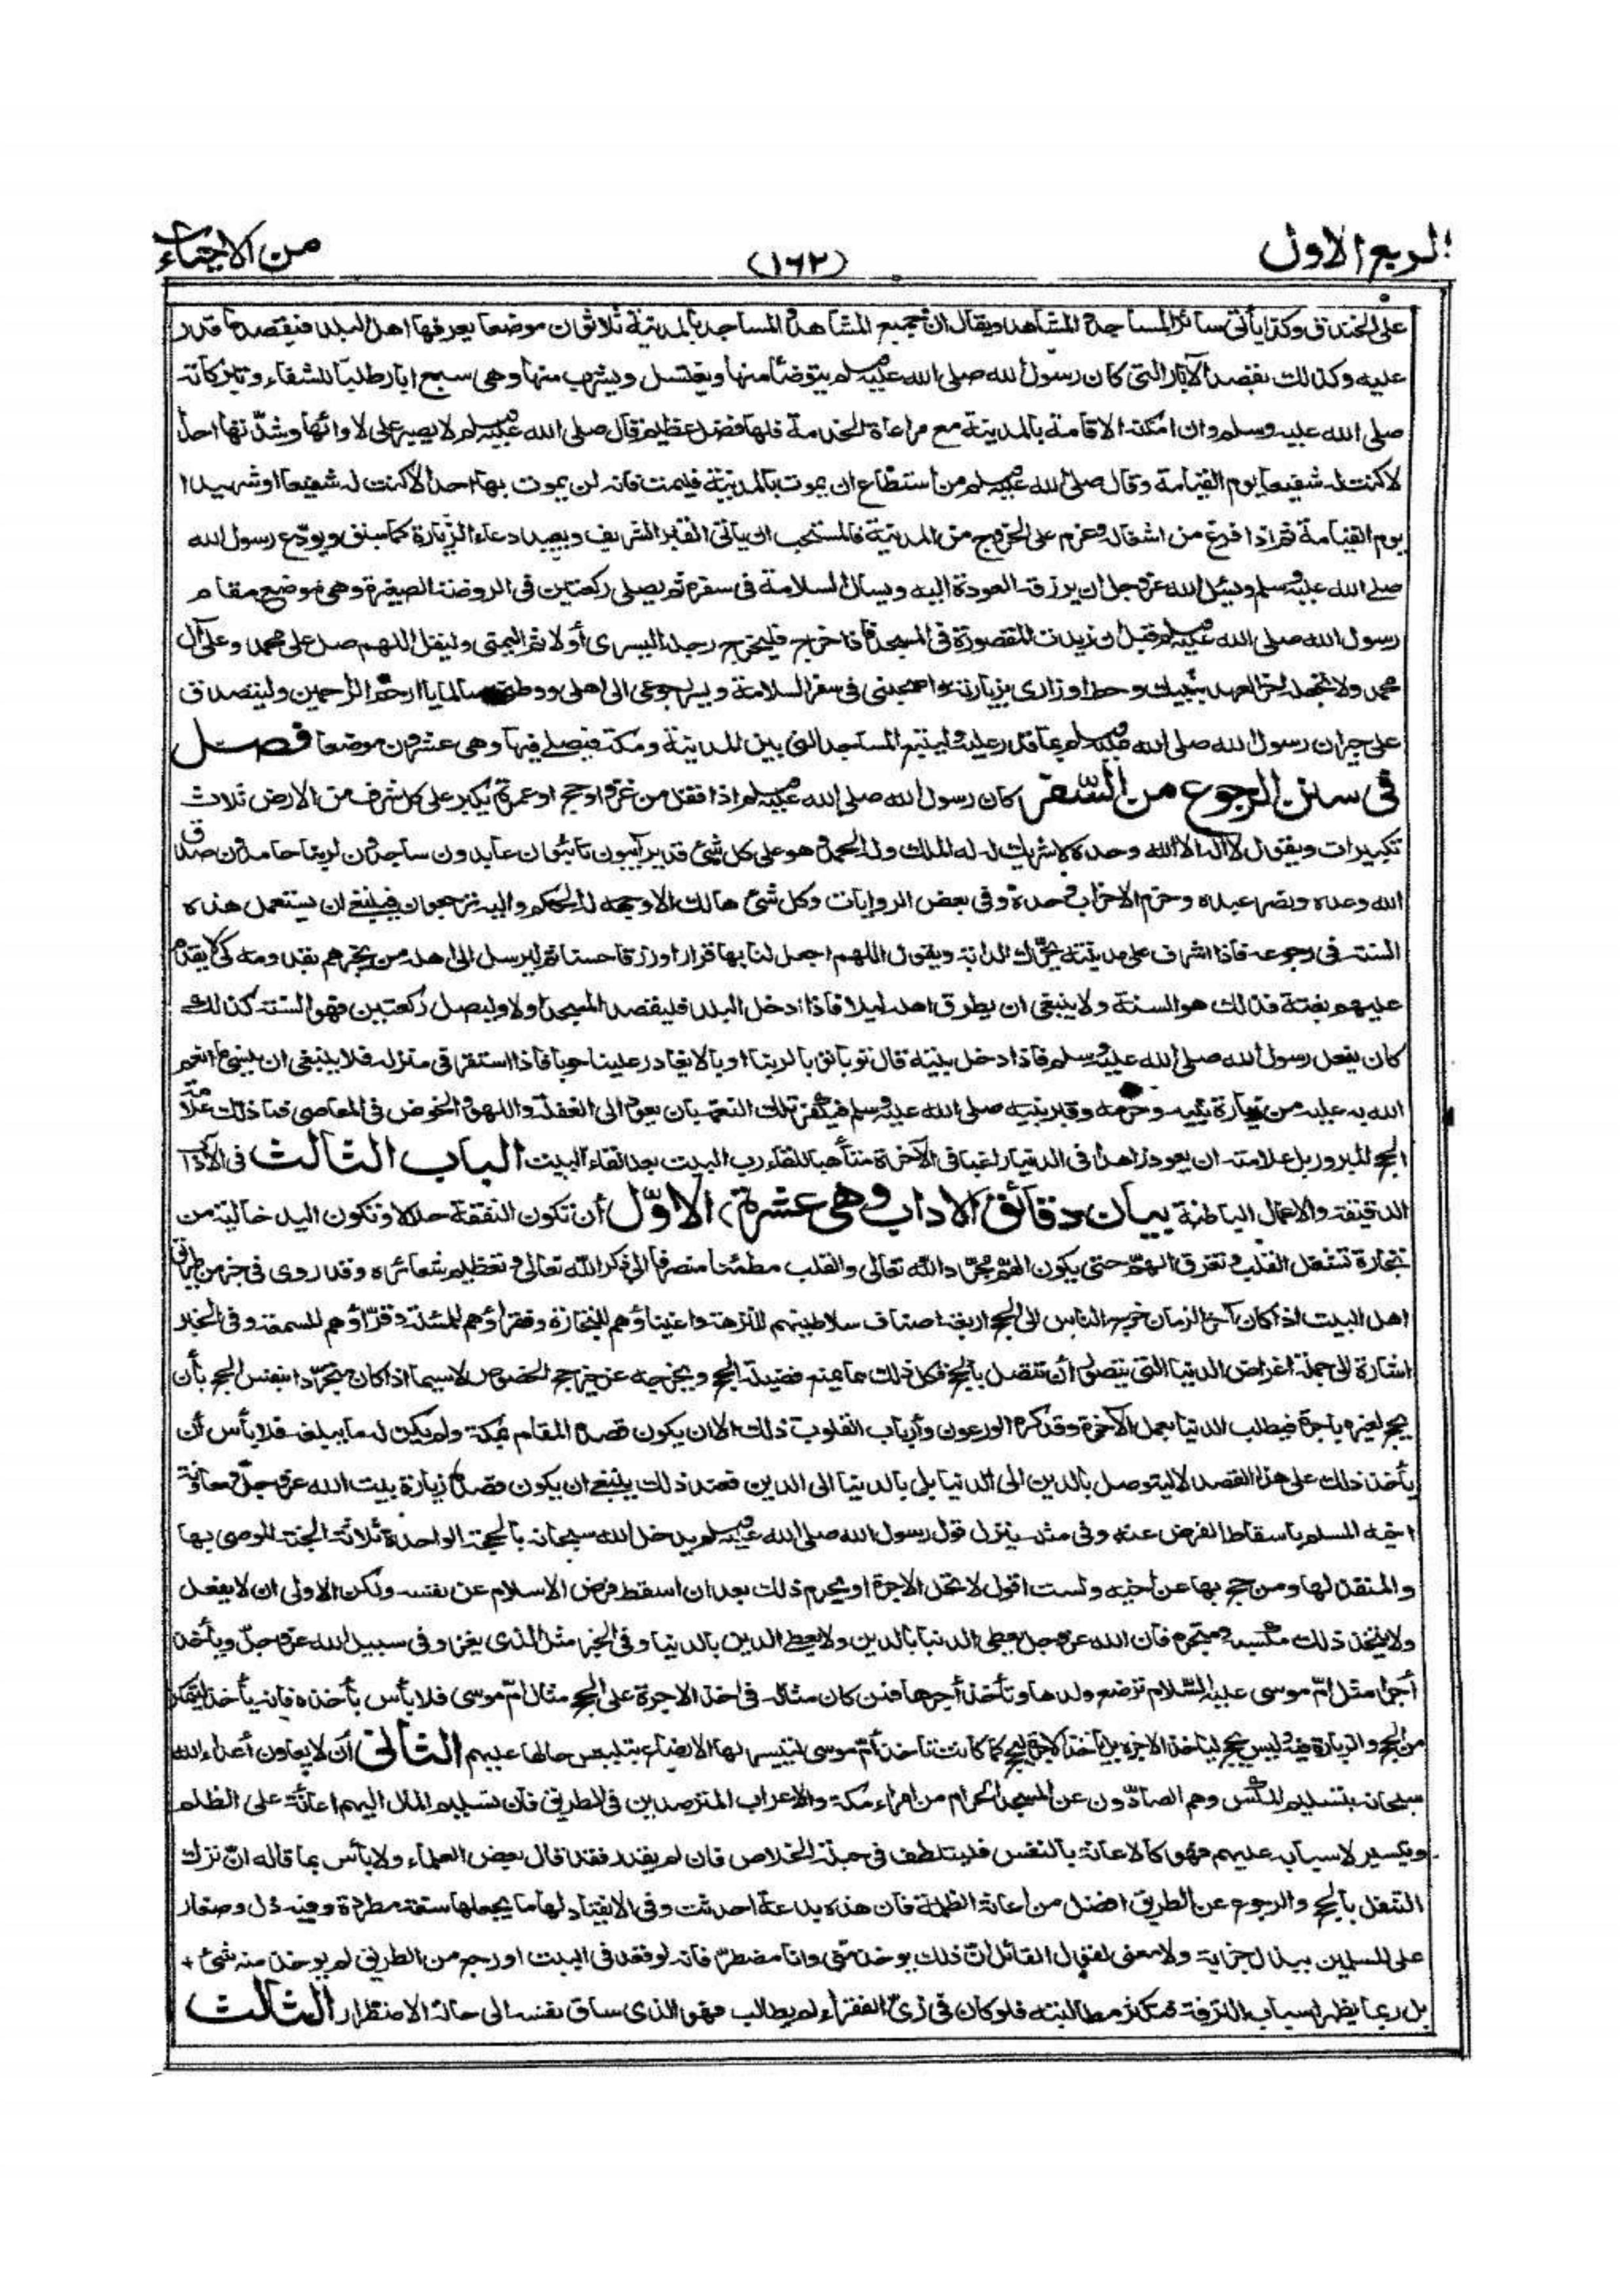 الربع الاول
(١٦٢)
من الاحياء
على الخندق وكذا يأتى سائر المساجد والمشاهد ويقال ان جميع المشاهد والمساجد بالمدينة ثلاثون موضعا يعرفها اهل البلد فيقصد ما قدر
عليه وكذلك يقصد الآبار التى كان رسول الله صلى الله عليه وسلم يتوضأ منها ويغتسل ويشرب منها وهى سبع ابار طلبا للشفاء وتبركا به
صلى الله عليه وسلم وان امكنه الاقامة بالمدينة مع مراعاة الحرمة فلها فضل عظيم قال صلى الله عليه وسلم لا يصبر على لاوائها وشدتها احد
الا كنت له شفيعا يوم القيامة وقال صلى الله عليه وسلم من استطاع ان يموت بالمدينة فليمت فانه لن يموت بها احد الا كنت له شفيعا او شهيدا
يوم القيامة ثم اذا فرغ من اشغاله وعزم على الخروج من المدينة فالمستحب ان يأتى القبر الشريف ويعيد دعاء الزيارة كما سبق ويودع رسول الله
صلى الله عليه وسلم ويسئل الله عز وجل ان يرزقه العودة اليه ويسأل السلامة فى سفره ثم يصلى ركعتين فى الروضة الصغيرة وهى موضع مقام
رسول الله صلى الله عليه وسلم قبل ان زيدت المقصورة فى المسجد فاذا خرج فليخرج رجله اليسرى أولا ثم اليمنى وليقل اللهم صل على محمد وعلى آل
محمد ولا تجعله اخر العهد بنبيك وحط اوزارى بزيارته واصحبنى فى سفرى السلامة ويسر رجوعى الى اهلى ووطنى سالما يا ارحم الراحمين وليتصدق
على جيران رسول الله صلى الله عليه وسلم بما قدر عليه وليتتبع المساجد التى بين المدينة ومكة فيصلى فيها وهى عشرون موضعا فصل
فى سنن الرجوع من السفر كان رسول الله صلى الله عليه وسلم اذا قفل من غزو او حج او عمرة يكبر على كل شرف من الارض ثلاث
تكبيرات ويقول لا اله الا الله وحده لا شريك له له الملك وله الحمد وهو على كل شئ قدير آيبون تائبون عابدون ساجدون لربنا حامدون صدق
الله وعده ونصر عبده وهزم الاحزاب وحده وفى بعض الروايات وكل شئ هالك الا وجهه له الحكم واليه ترجعون فينبغى ان يستعمل هذه
السنة فى رجوعه فاذا اشرف على مدينته يحرك الدابة ويقول اللهم اجعل لنا بها قرارا ورزقا حسنا ثم ليرسل الى اهله من يخبرهم بقدومه كى لا يقدم
عليهم بغتة فذلك هو السنة ولا ينبغى ان يطرق اهله ليلا فاذا دخل البلد فليقصد المسجد اولا وليصل ركعتين فهو السنة كذلك
كان يفعل رسول الله صلى الله عليه وسلم فاذا دخل بيته قال توبا توبا لربنا اوبا لا يغادر علينا حوبا فاذا استقر فى منزله فلا ينبغى ان ينسى ما انعم
الله به عليه من زيارة بيته وحرمه وقبر نبيه صلى الله عليه وسلم فيكفر تلك النعمة بان يعود الى الغفلة واللهو والخوض فى المعاصى فما ذلك علامة
الحج المبرور بل علامته ان يعود زاهدا فى الدنيا راغبا فى الآخرة متأهبا للقاء رب البيت بعد لقاء البيت الباب الثالث فى الآداب
الدقيقة والاعمال الباطنة بيان دقائق الاداب وهى عشرة، الاول أن تكون النفقة حلالا وتكون اليد خالية من
تجارة تشغل القلب وتفرق الهم حتى يكون الهم مجردا لله تعالى والقلب مطمئنا منصرفا الى ذكر الله تعالى وتعظيم شعائره وقد روى فى خبر من طريق
اهل البيت اذا كان آخر الزمان خرج الناس الى الحج اربعة اصناف سلاطينهم للنزهة واغنياؤهم للتجارة وفقراؤهم للمسئلة وقراؤهم للسمعة وفى الخبر
اشارة الى جملة اغراض الدنيا التى يتصور أن تتصل بالحج فكل ذلك مما يمنع فضيلة الحج ويخرجه عن حيز حج الخصوص لاسيما اذا كان متجردا بنفس الحج بأن
يحج لغيره باجرة فيطلب الدنيا بعمل الآخرة وقد كره الورعون وأرباب القلوب ذلك الا ان يكون قصده المقام بمكة ولم يكن له ما يبلغه فلا بأس أن
يأخذ ذلك على هذا القصد لا ليتوصل بالدين الى الدنيا بل بالدنيا الى الدين فعند ذلك ينبغى ان يكون قصده زيارة بيت الله عز وجل ومعاونة
اخيه المسلم باسقاط الفرض عنه وفى مثله ينزل قول رسول الله صلى الله عليه وسلم يدخل الله سبحانه بالحجة الواحدة ثلاثة الجنة الموصى بها
والمنفذ لها ومن حج بها عن أخيه ولست اقول لا تحل الاجرة او يحرم ذلك بعد ان اسقط فرض الاسلام عن نفسه ولكن الاولى ان لا يفعل
ولا يتخذ ذلك مكسبه ومتجره فان الله عز وجل يعطى الدنيا بالدين ولا يعطى الدين بالدنيا وفى الخبر مثل الذى يغزو فى سبيل الله عز وجل ويأخذ
أجرا مثل ام موسى عليه السلام ترضع ولدها وتأخذ أجرها فمن كان مثاله فى اخذ الاجرة على الحج مثال ام موسى فلا بأس بأخذه فانه يأخذ ليتمكن
من الحج والزيارة فيه وليس يحج ليأخذ الاجرة بل يأخذ الاجرة ليحج كما كانت تأخذ أم موسى ليتيسر لها الارضاع بتلبيس حالها عليهم الثانى أن لا يعاون أعداء الله
سبحانه بتسليم المكس وهم الصادون عن المسجد الحرام من امراء مكة والاعراب المترصدين فى الطريق فان تسليم المال اليهم اعانة على الظلم
وتيسير لاسبابه عليهم فهو كالاعانة بالنفس فليتلطف فى حيلة الخلاص فان لم يقدر فقد قال بعض العلماء ولا بأس بما قاله ان ترك
التنفل بالحج والرجوع عن الطريق افضل من اعانة الظلمة فان هذه بدعة احدثت وفى الانقياد لها ما يجعلها سنة مطردة وفيه ذل وصغار
على المسلمين ببذل جزية ولا معنى لقول القائل ان ذلك يوخذ منى وانا مضطر فانه لو قعد فى البيت او رجع من الطريق لم يوخذ منه شئ +
بل ربما يظهر اسباب الترفه فتكثر مطالبته فلو كان فى زى الفقراء لم يطالب فهو الذى ساق نفسه الى حالة الاضطرار الثالث